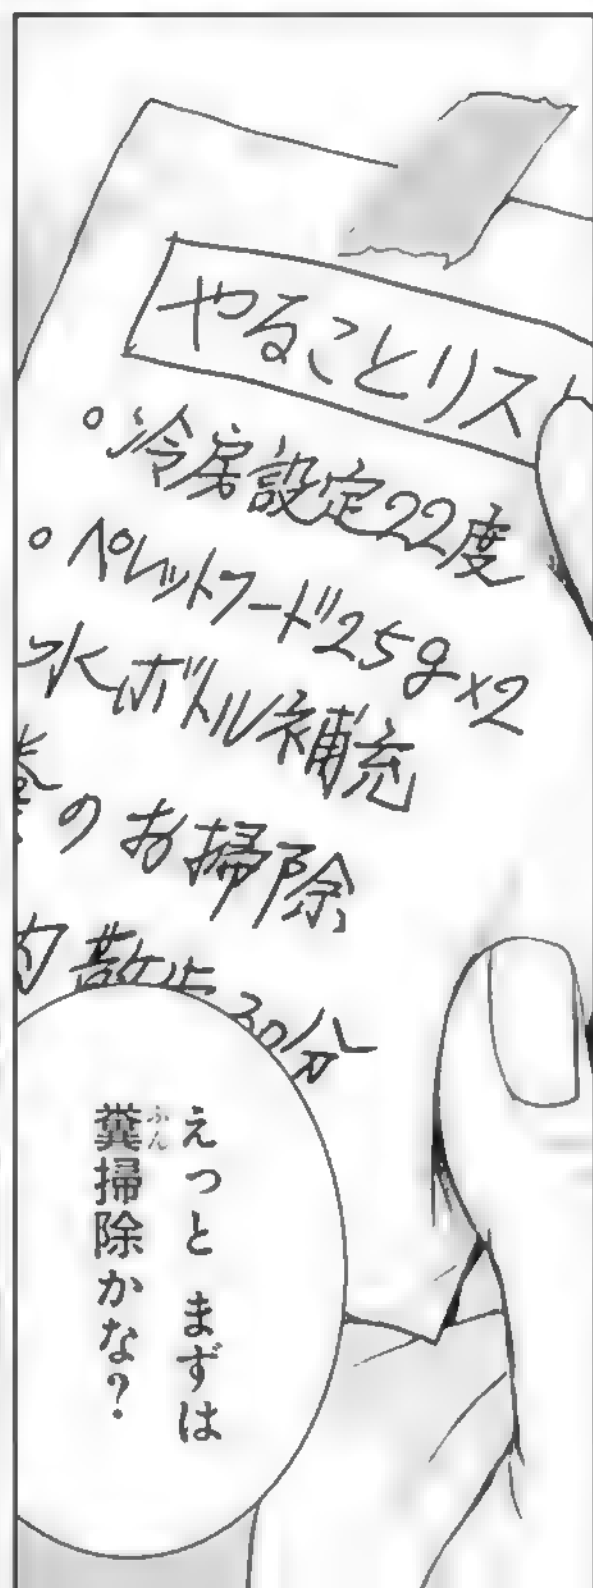 やることリスト
・冷房設定22度
・ペレットフード25g×2
水ボトル補充
のお掃除
内散歩30分
えっと まずは
糞掃除かな?
ふん